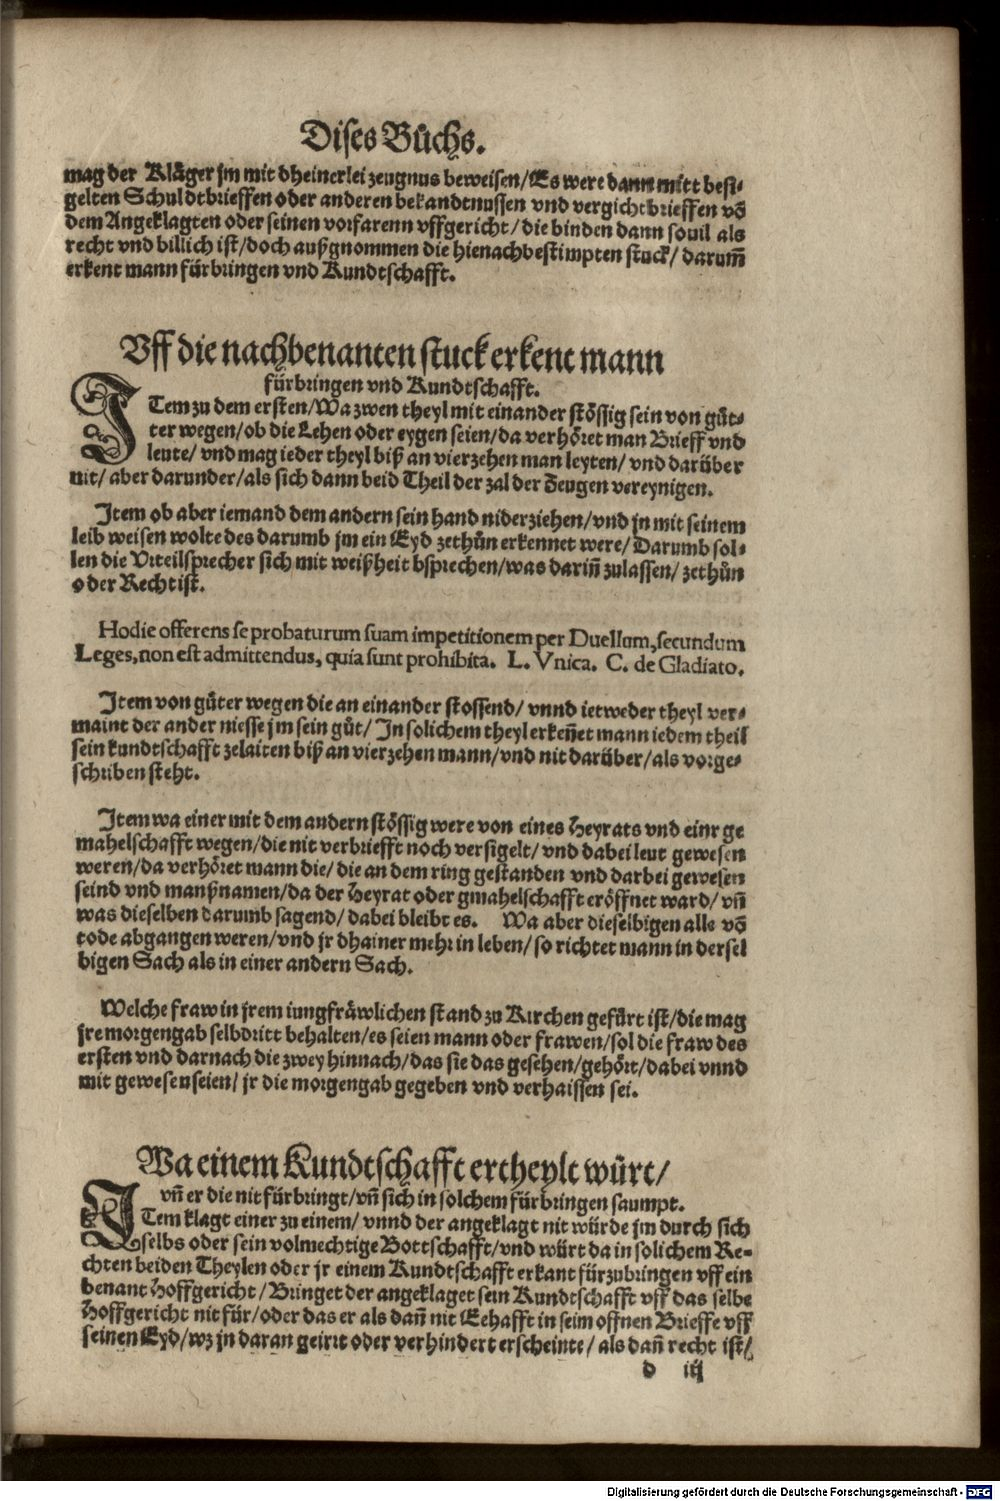 Dises Bůchs.
mag der Kläger jm mit dheinerlei zeugnus beweisen/Es were dann mitt besi-
gelten Schuldtbrieffen oder anderen bekandtnussen vnd vergichtbrieffen võ
dem Angeklagten oder seinen vorfarenn vffgericht/die binden dann souil als
recht vnd billich ist/doch außgnommen die hienachbestimpten stuck/darum̃
erkent mann fürbringen vnd Kundtschafft.
Vff die nachbenanten stuck erkent mann
fürbringen vnd Kundtschafft.
ITem zu dem ersten/Wa zwen theyl mit einander stössig sein von güt-
ter wegen/ob die Lehen oder eygen seien/da verhöret man Brieff vnd
leute/vnd mag ieder theyl biß an vierzehen man leyten/vnd darüber
nit/aber darunder/als sich dann beid Theil der zal der Zeugen vereynigen.
Item ob aber iemand dem andern sein hand niderziehen/vnd jn mit seinem
leib weisen wolte des darumb jm ein Eyd zethůn erkennet were/Darumb sol-
len die Vrteilsprecher sich mit weißheit bsprechen/was darin̄ zulassen/zethůn
oder Recht ist.
Hodie offerens se probaturum suam impetitionem per Duellum, secundum
Leges, non est admittendus, quia sunt prohibita. L. Vnica. C. de Gladiato.
Item von güter wegen die an einander stossend/vnnd ietweder theyl ver-
maint der ander niesse jm sein gůt/In solichem theyl erken̄et mann iedem theil
sein kundtschafft zelaiten biß an vierzehen mann/vnd nit darüber/als vorge-
schriben steht.
Item wa einer mit dem andern stössig were von eines Heyrats vnd einr ge
mahelschafft wegen/die nit verbriefft noch versigelt/vnd dabei leut gewesen
weren/da verhöret mann die/die an dem ring gestanden vnd darbei gewesen
seind vnd manßnamen/da der Heyrat oder gmahelschafft eröffnet ward/vn̄
was dieselben darumb sagend/dabei bleibt es. Wa aber dieselbigen alle võ
tode abgangen weren/vnd jr dhainer mehr in leben/so richtet mann in dersel
bigen Sach als in einer andern Sach.
Welche fraw in jrem iungfräwlichen stand zu Kirchen gefürt ist/die mag
jre morgengab selbdritt behalten/es seien mann oder frawen/sol die fraw des
ersten vnd darnach die zwey hinnach/das sie das gesehen/gehört/dabei vnnd
mit gewesen seien/jr die morgengab gegeben vnd verhaissen sei.
Wa einem Kundtschafft ertheylt würt/
vn̄ er die nit fürbringt/vn̄ sich in solchem fürbringen saumpt.
ITem klagt einer zu einem/vnnd der angeklagt nit würde jm durch sich
selbs oder sein volmechtige Bottschafft/vnd würt da in solichem Re-
chten beiden Theylen oder jr einem Kundtschafft erkant fürzubringen vff ein
benant Hoffgericht/Bringet der angeklaget sein Kundtschafft vff das selbe
Hoffgericht nit für/oder das er als dan̄ nit Eehafft in seim offnen Brieffe vff
seinen Eyd/wz jn daran geirrt oder verhindert erscheinte/als dan̄ recht ist/
d iij
Digitalisierung gefördert durch die Deutsche Forschungsgemeinschaft - DFG